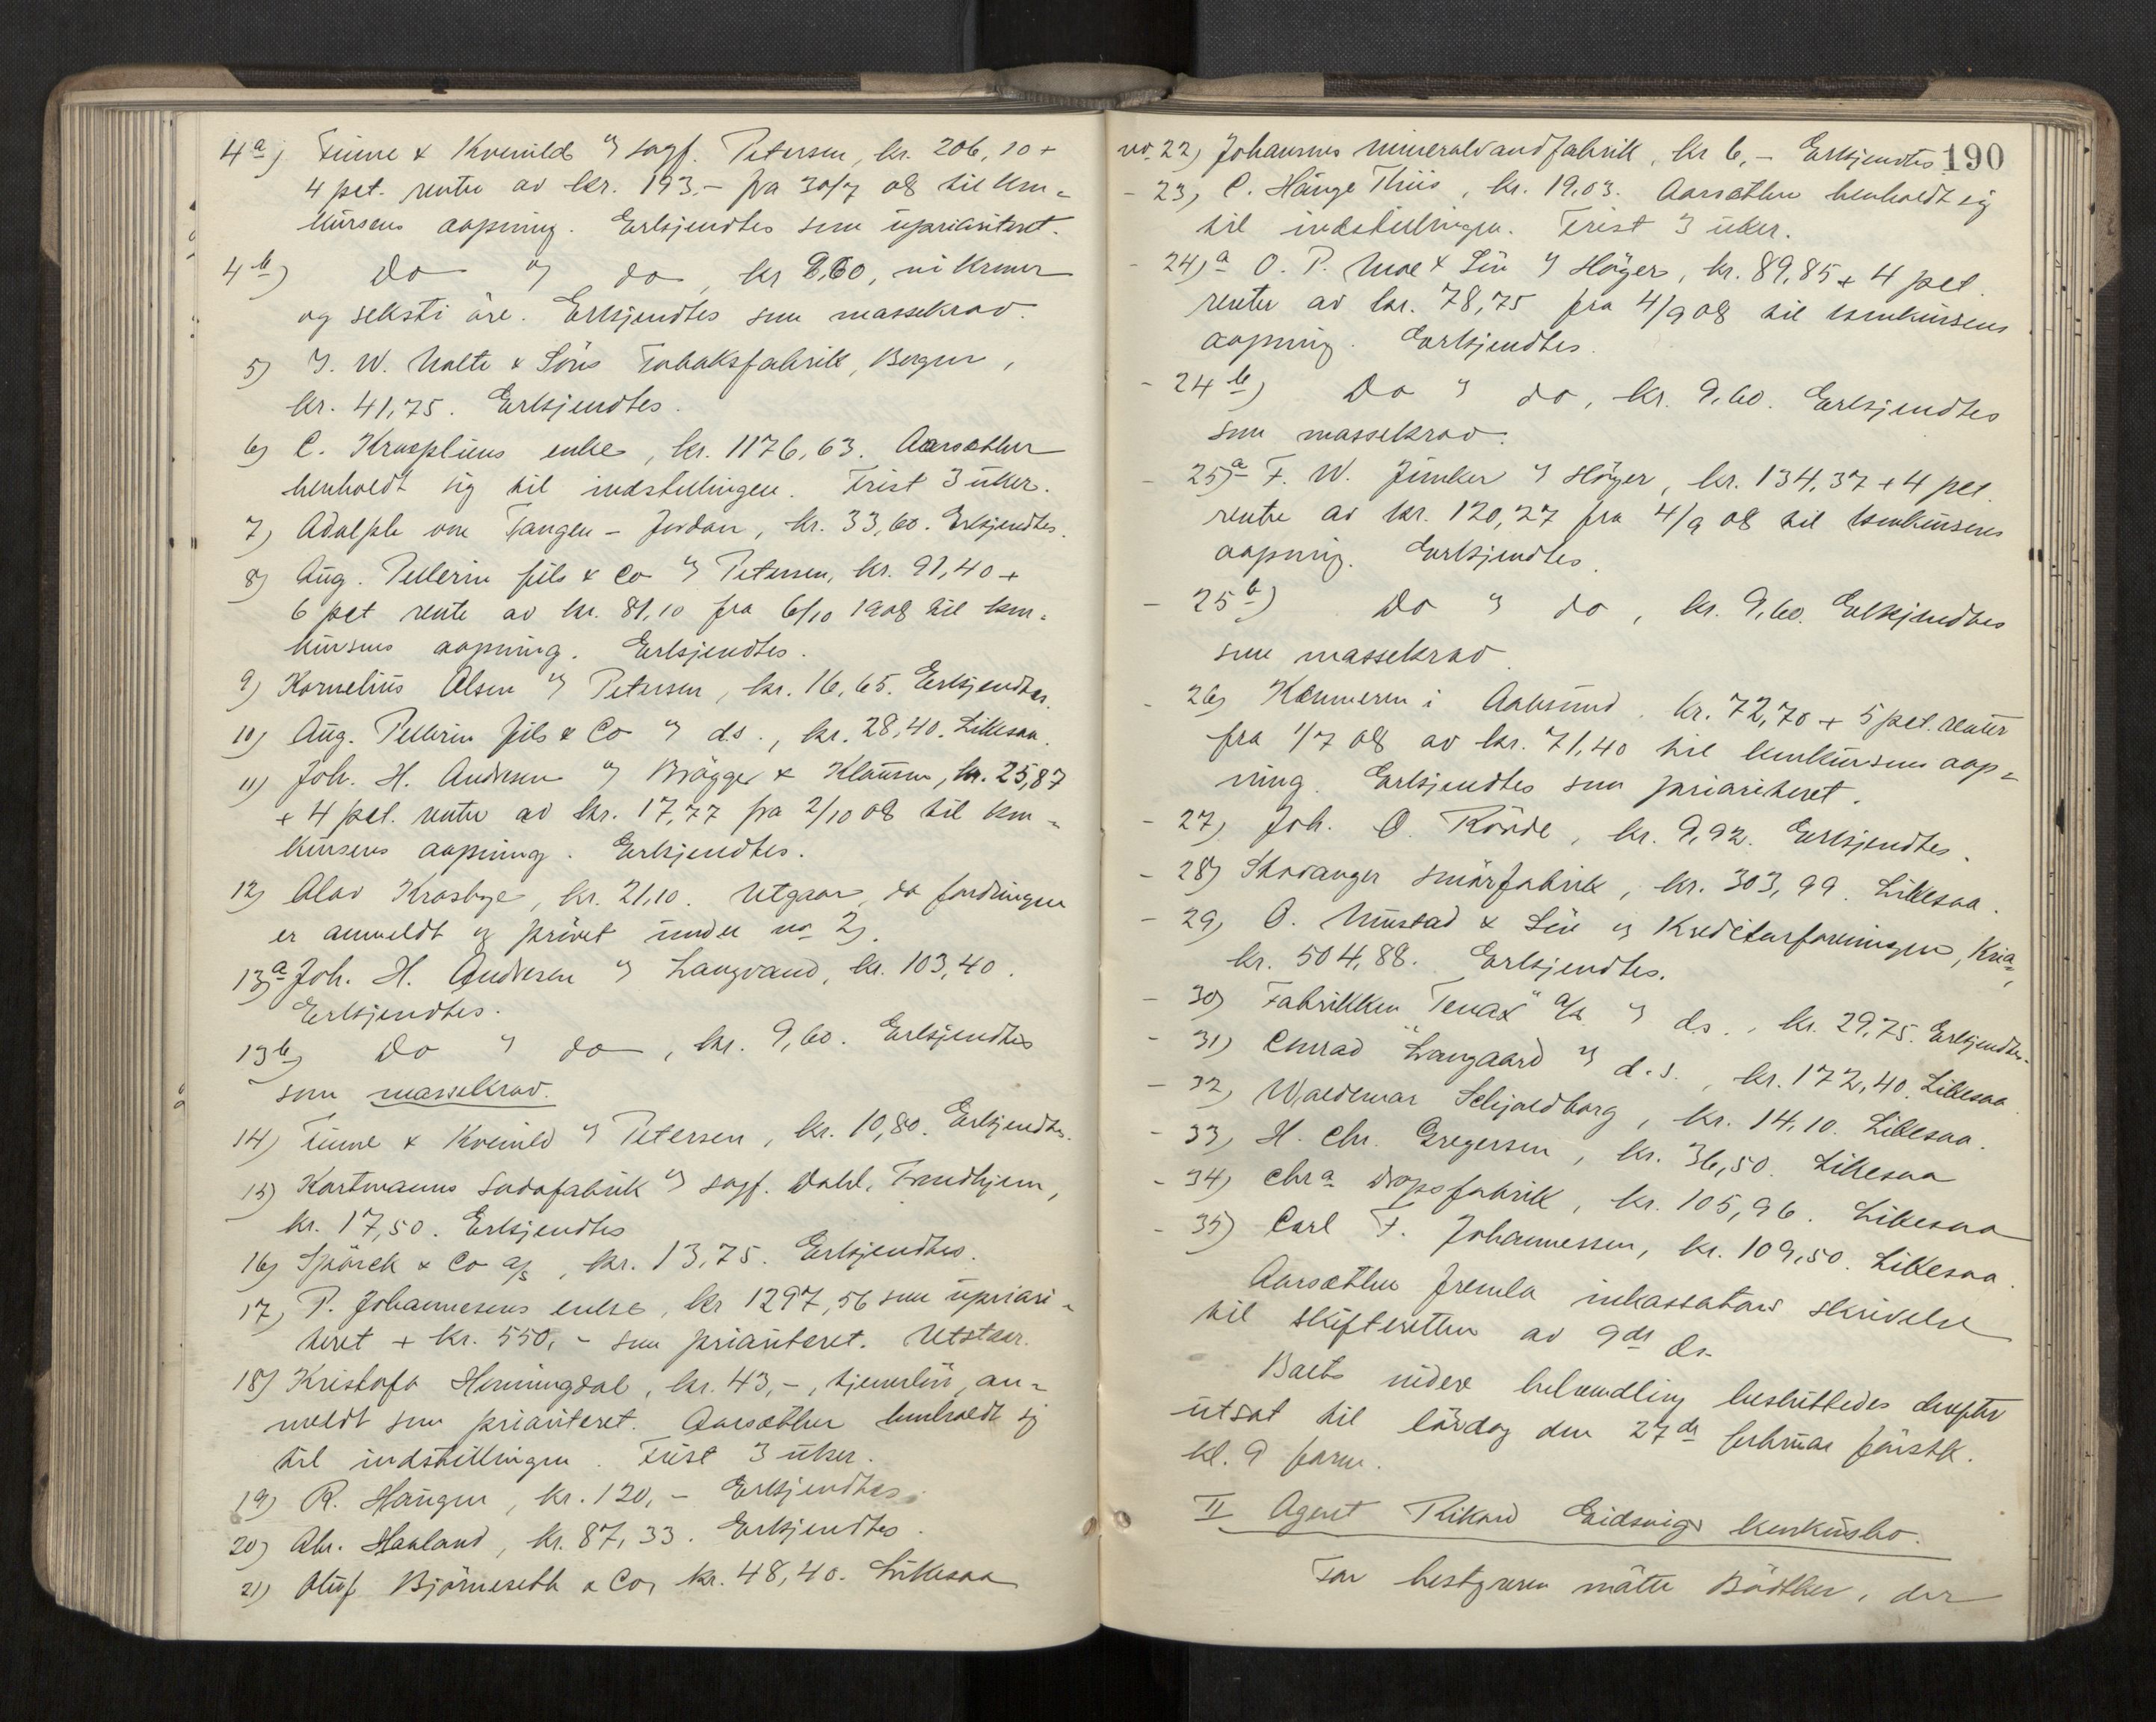 4a) Finne & Kvenild v/ sagf. Petersen, kr. 206,10 +
4 pct. renter av kr. 193.- fra 30/7 08 til kon-
kursens aapning. Erkjendtes som uprioritert.
4b) Do v/ do, kr 9,60, ni kroner
og seksti øre. Erkjendtes som massekrav.
5) J. W. Nolte & Söns Tobaksfabrik, Bergen,
kr. 41,75. Erkjendtes.
6) C. Kroepliens enke, kr. 1176,63. Aarsæther
henholdt sig til indstillingen. Frist 3 uker.
7) Adolph von Tangen - Jordan, kr. 33,60. Erkjendtes.
8) Aug. Pellerin fils & Co v/ Petersen, kr. 91,40 +
6 pct rente av kr. 81,10 fra 6/10 1908 til kon-
kursens aapning. Erkjendtes.
9) Kornelius Olsen v/ Petersen, kr. 16,65. Erkjendtes.
10) Aug. Pellerin fils & Co v/ d.s., kr. 28,40. Likesaa.
11) Joh. H. Andresen v/ Brögger & Klausen, kr. 25,87
+ 4 pct. renter av kr. 17,77 fra 2/10 08 til kon-
kursens aapning. Erkjendtes.
12) Olav Krosbye, kr. 21,10. Utgaar, da fordringen
er anmeldt og prövet under no 2).
13a) Joh. H. Andresen v/ Langvand, kr. 103,40.
Erkjendtes.
13b) Do v/ do, kr. 9,60. Erkjendtes
som massekrav.
14) Finne & Kvenild v/ Petersen, kr. 10,80. Erkjendtes.
15) Kortmanns Sodafabrik v/ sagf. Dahl, Trondhjem,
kr. 17,50. Erkjendtes
16) Spörck & Co a/s, kr. 13,75. Erkjendtes.
17) P. Johannesens enke, kr 1297,56 som upriori-
teret + kr. 550,- som prioriteret. Utstaar.
18) Kristofa Henningdal, kr. 43,-, tjenerlön, an-
meldt som prioriteret. Aarsæther henholdt sig
til indstillingen. Frist 3 uker.
19) R. Haugen, kr. 120,- Erkjendtes.
20) Abr. Haaland, kr. 87,33. Erkjendtes.
21) Oluf Björneseth & Co, kr. 48,40. Likesaa
190
no. 22) Johansens mineralvandfabrik, kr 6,- Erkjendtes
- 23) C. Hauge Thiis, kr. 19,03. Aarsæther henholdt sig
til indstillingen. Frist 3 uker.
- 24)a O. P. Moe & Sön v/ Höyer, kr. 89,85 + 4 pct.
renter av kr. 78,75 fra 4/9 08 til konkursens
aapning. Erkjendtes.
- 24b) Do v/ do, kr. 9,60. Erkjendtes
som massekrav.
- 25)a F. W. Junker v/ Höyer, kr. 134,37 + 4 pct.
rente av kr. 120,27 fra 4/9 08 til konkursens
aapning. Erkjendtes.
- 25b) Do v/ do, kr. 9,60. Erkjendtes
som massekrav.
- 26) Kemneren i Aalesund, kr. 72,70 + 5 pct. renter
fra 1/7 08 av kr. 71,40 til konkursens aap-
ning. Erkjendtes som prioriteret.
- 27) Joh. O. Rövde, kr. 9,92. Erkjendtes.
- 28) Stavanger smörfabrik, kr. 303,99. Likesaa.
- 29) O. Mustad & Sön v/ Kreditorforeningen, Kria,
kr. 504,88. Erkjendtes.
- 30) Fabrikken "Tenax" a/s v/ d.s., kr. 29,75. Erkjendtes.
- 31) Conrad Langaard v/ d.s., kr. 172,40. Likesaa.
- 32) Waldemar Schjoldborg, kr. 14,10. Likesaa.
- 33) H. Chr. Gregersen, kr. 36,50. Likesaa
- 34) Chra dropsfabrik, kr. 105,96. Likesaa
- 35) Carl F. Johannessen, kr. 109,50. Likesaa.
Aarsæther fremla inkassators skrivelse
til skifteretten av 9de ds.
Boets videre behandling besluttedes derefter
utsat til lördag den 27de februar förstk.
kl. 9 form.
II Agent Rikard Eidsvigs konkursbo.
For bestyreren mötte Bödtker, der